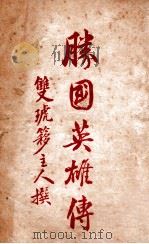 勝國英雄傳
雙琥簃主人撰